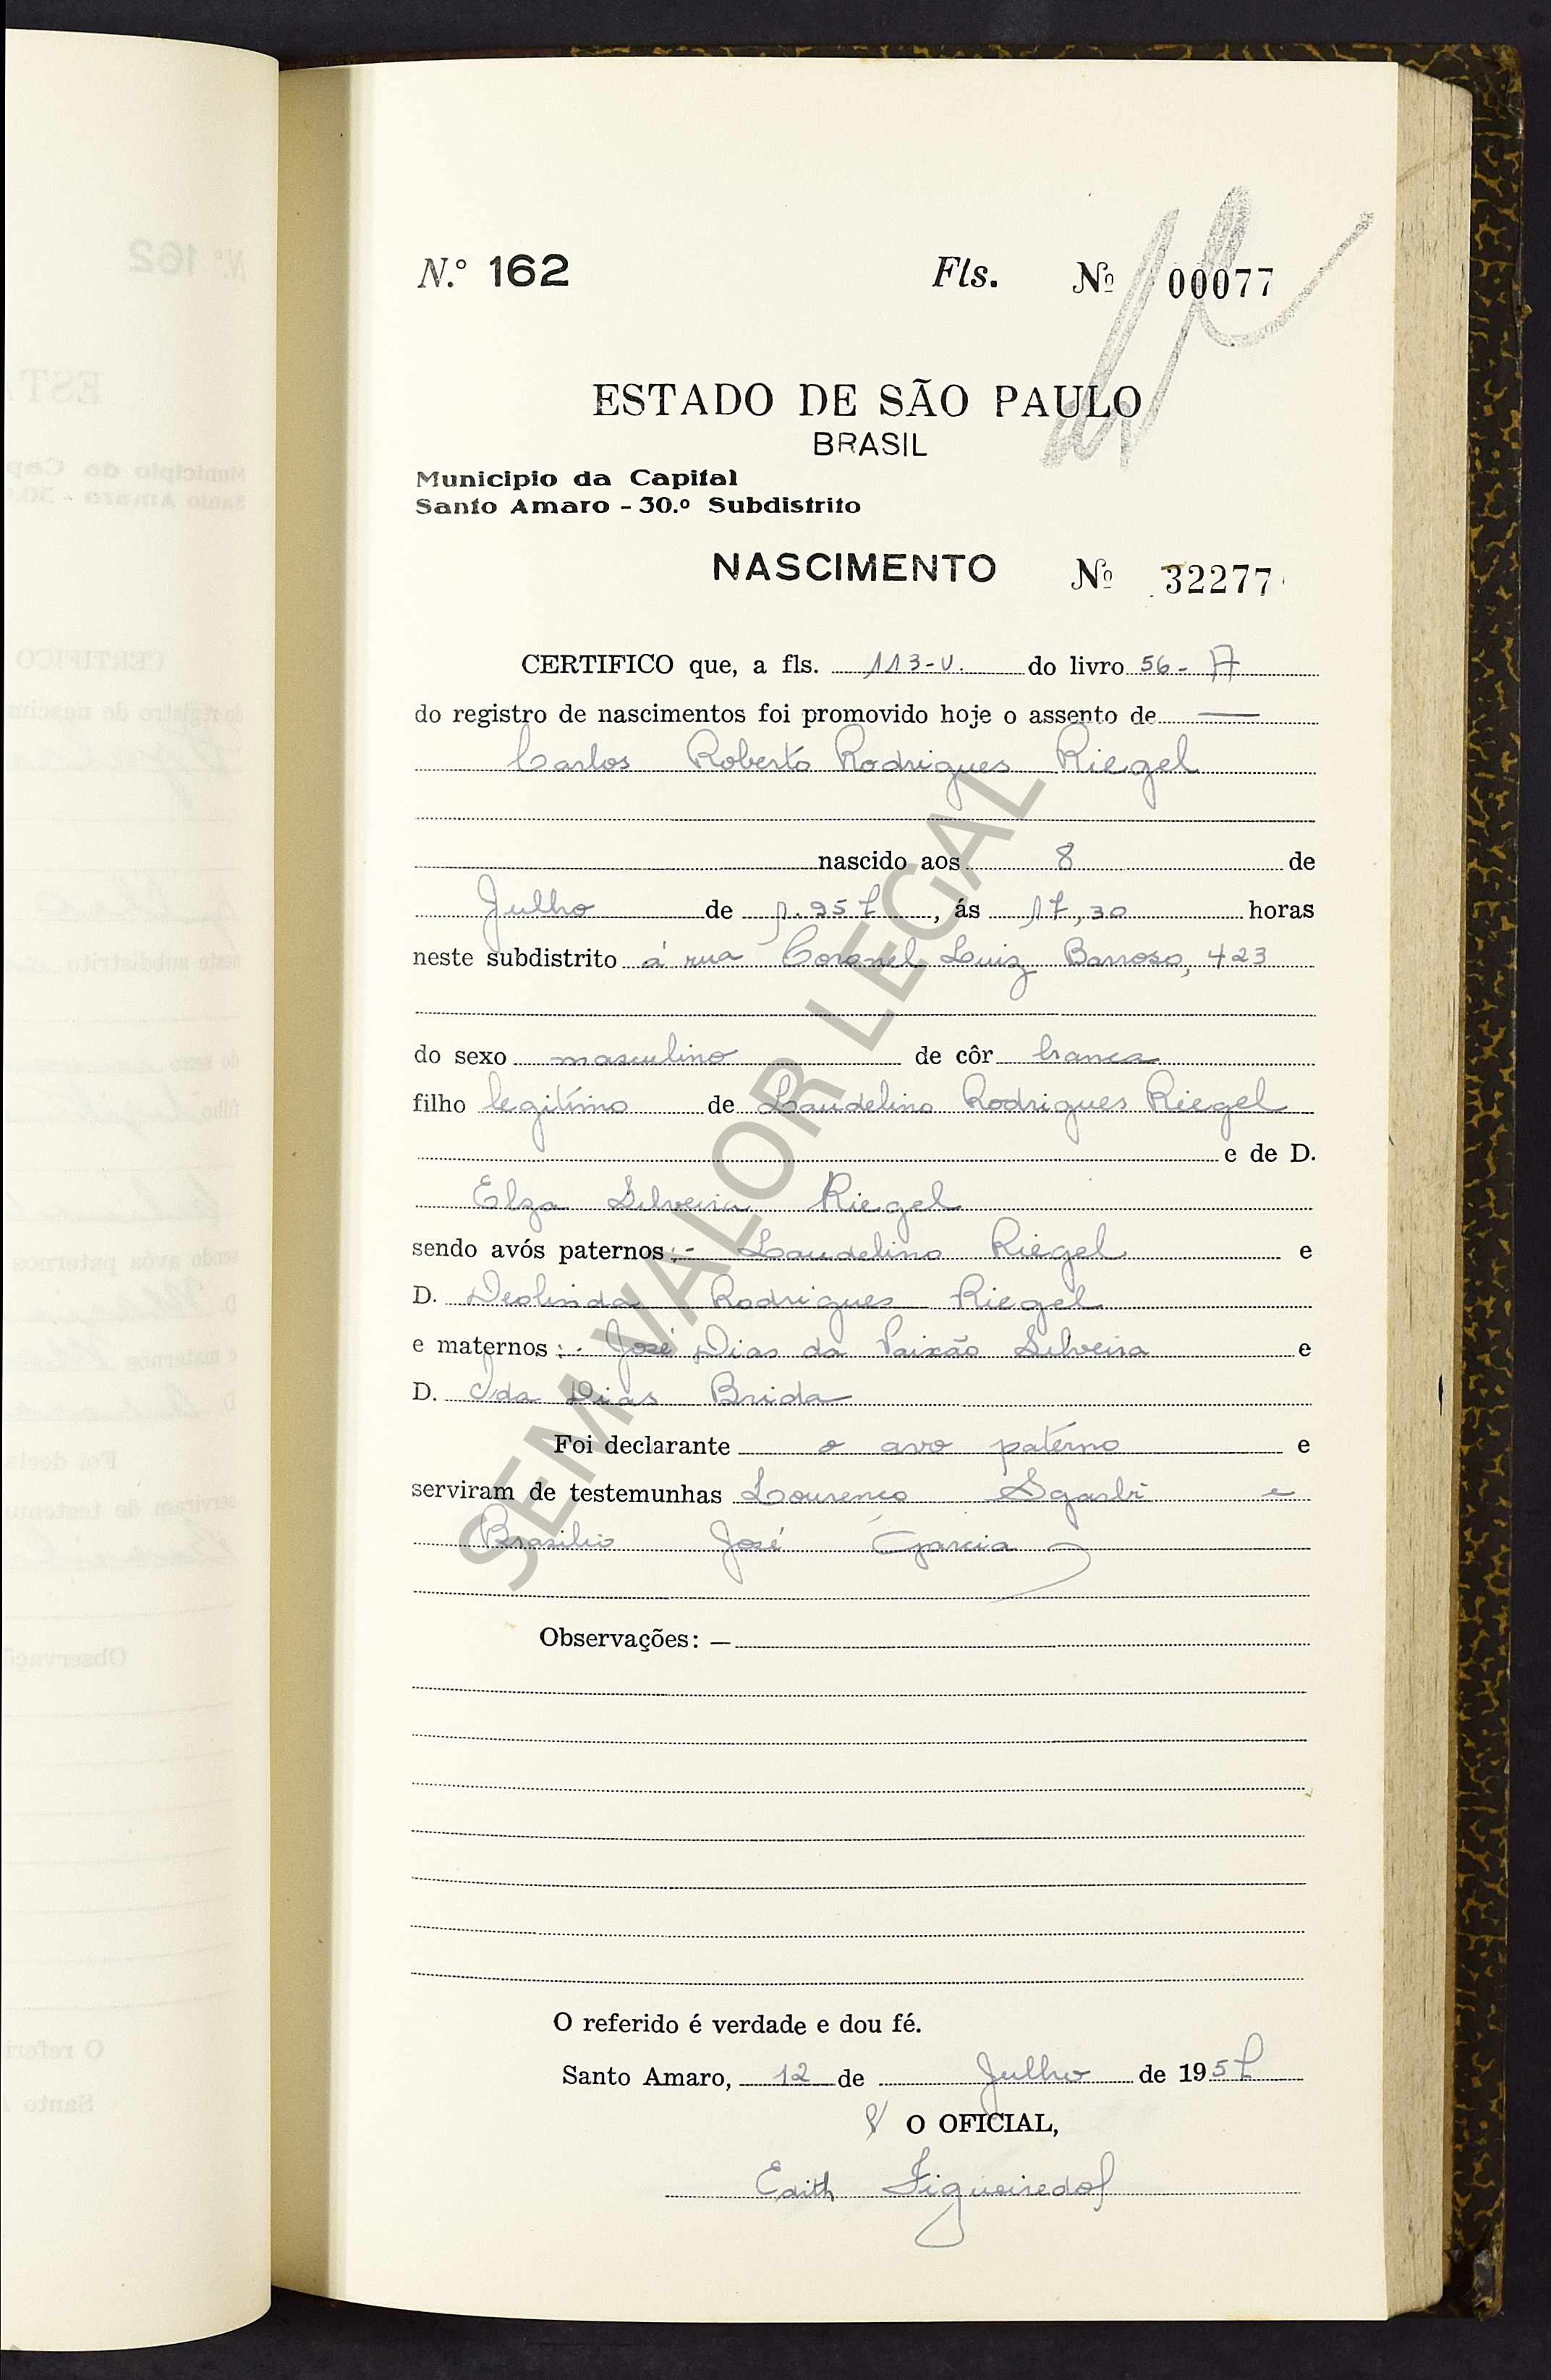 N.º 162 Fls. Nº 00077
ESTADO DE SÃO PAULO
BRASIL
Municipio da Capital
Santo Amaro - 30.º Subdistrito
NASCIMENTO Nº 32277
CERTIFICO que, a fls. 113-v. do livro 56- A
do registro de nascimentos foi promovido hoje o assento de —
Carlos Roberto Rodrigues Riegel
nascido aos 8 de
Julho de 1.957, ás 17,30 horas
neste subdistrito á rua Coronel Luiz Barroso, 423
do sexo masculino de côr branca
filho legitimo de Laudelino Rodrigues Riegel
e de D.
Elza Silveira Riegel
sendo avós paternos :- Laudelino Riegel e
D. Deolinda Rodrigues Riegel
e maternos :- José Dias da Paixão Silveira e
D. Ida Dias Brida
Foi declarante o avo paterno e
serviram de testemunhas Lourenço Sgarbi e
Brasilio José Garcia
Observações: —
O referido é verdade e dou fé.
Santo Amaro, 12 de Julho de 1957
O OFICIAL,
Edith Figueiredo
SEM VALOR LEGAL